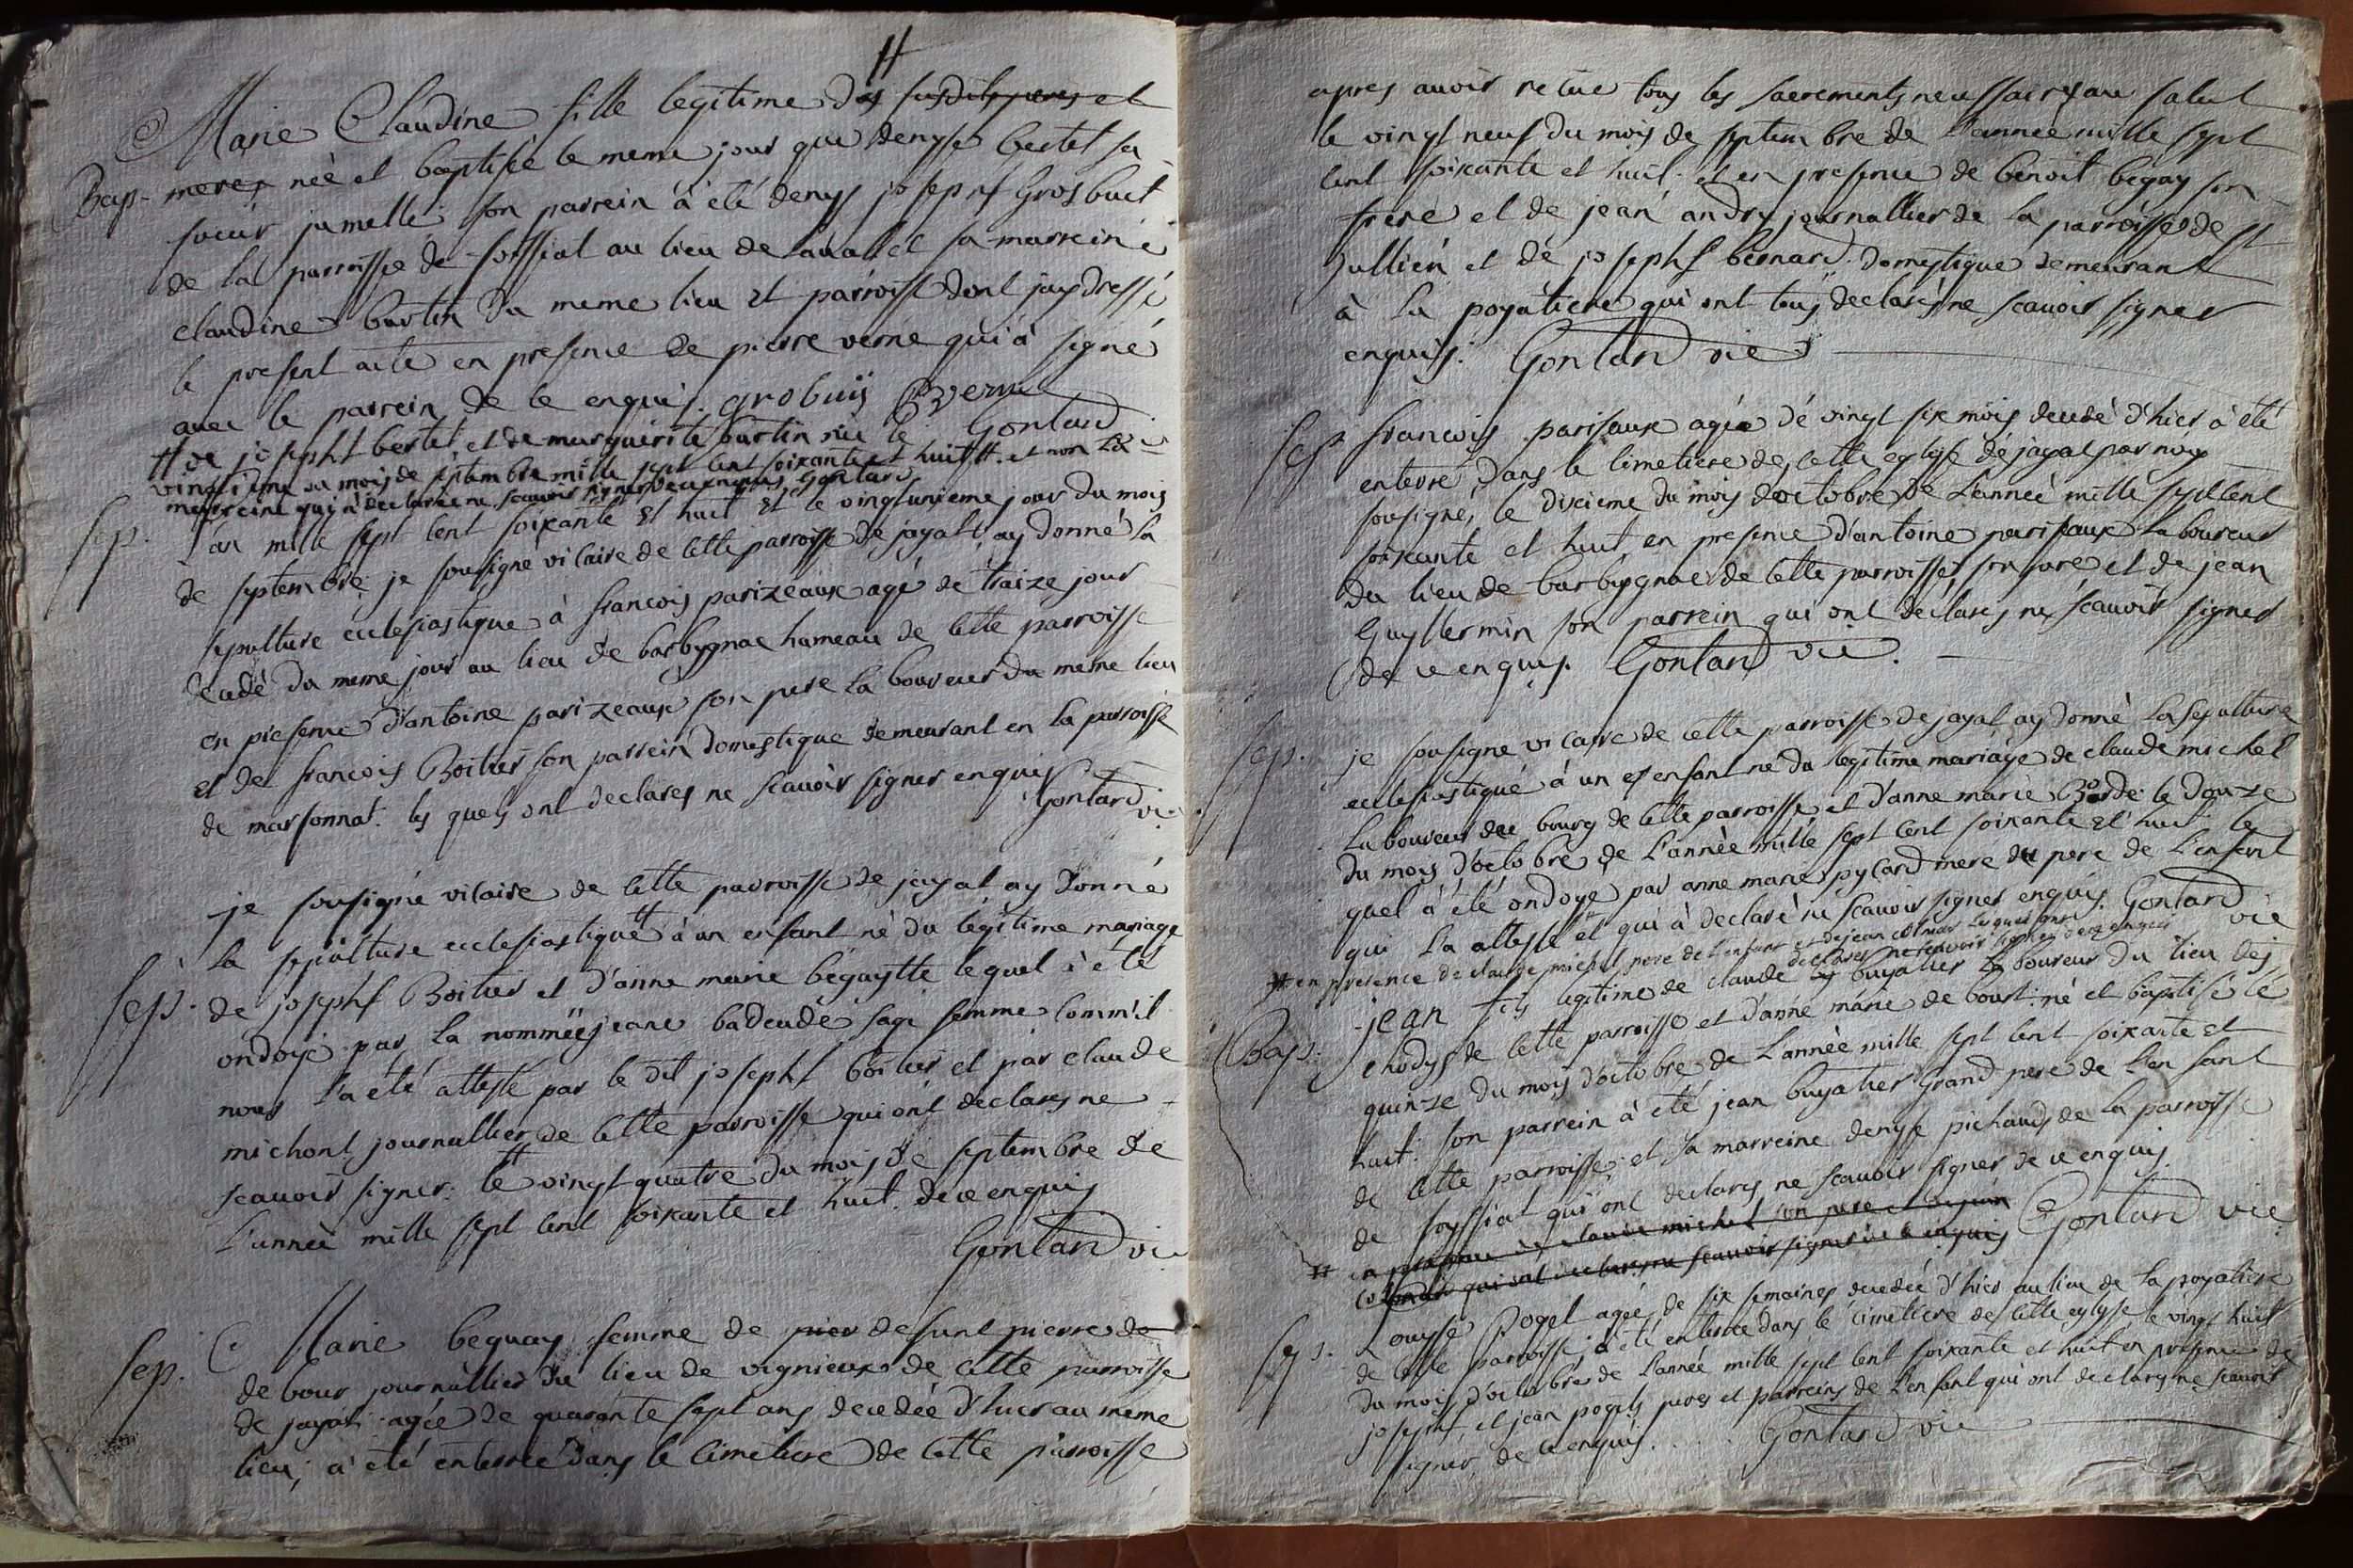 #
Marie Claudine fille legitime des susdits peres et
Bap. meres née et baptisée le meme jour que denyse bertet sa
soeur jumelle son parrein à été denys joseph Grosbuit
de la parroisse de foissiat au lieu de laval et sa marreine
claudine burtin du meme lieu et parroisse dont jay dressé
le present acte en presence de pierre verne qui à signé
avec le parrein de ce enquis. grobuis P verne
# de josepht bertet et de marguerite burtin née le Gontard
vingtieme du mois de septembre mille sept cent soixante et huit #. et non la
marreine qui à declarée ne scauoir signer de ce enquis Gontard
sep. L'an mille sept cent soixante et huit et le vingtunieme jour du mois
de septembre je sousigné vicaire de cette parroisse de jayat ay donné la
sepulture ecclesiastique à francois parizeaux agé de traize jour
decedé du meme jour au lieu de barbygnac hameau de cette parroisse
en presence d'antoine parizeaux son pere laboureur du meme lieu
et de francois Boitier son parrein domestique demeurant en la parroisse
de marsonnat. les quels ont declares ne scauoir signer enquis
Gontard vic
je sousigné vicaire de cette parroisse de jayat ay donné
la sepulture ecclesiastique # à un enfant né du legitime mariage
sep. de josephf Boitier et d'anne marie begaytte lequel à été
ondoyé par la nommée jeane badeudé sage femme comm'il
nous l'a été attesté par le dit josephf boitier et par claude
michont journallier de cette parroisse qui ont declares ne
scauoir signer. # le vingt quatre du mois de septembre de
L'année mille sept cent soixante et huit. de ce enquis
Gontard vic
sep. Marie beguay femme de pier defunt pierre de
de bour journallier du lieu de vignieux de cette parroisse
de jayat agée de quarante sept ans decedée d'hier au meme
lieu, à été enterrée dans le cimetiere de cette parroisse
apres auoir recue tous les sacrements neussaires au salut
le vingt neuf du mois de septembre de L'année mille sept
cent soixante et huit. et en presence de benoit begay son
frere et de jean andry journallier de la parroisse de st
jullien et de josephf bernard domestique demeurant
à la poyatiere qui ont tous declarés ne scauoir signer
enquis. Gontard vic
sep francois parisaux agée de vingt six mois decedé d'hier à été
enterré dans le cimetiere de cette eglyse de jayat par nous
sousigné, le dixieme du mois doctobre de L'année mille sept cent
soixante et huit, en presence d'antoine parisaux laboureur
du lieu de barbygnac de cette parroisse, son pere et de jean
Guyllermin son parrein qui ont declares ne scauoir signer
de ce enquis. Gontard vic.
sep. je sousigné vicaire de cette parroisse de jayat ay donné la sepulture
ecclesiastique à un enfant né du legitime mariage de claude michel
laboureur du bourg de cette parroisse et d'anne marie Borde le douze
du mois d'octobre de L'année mille sept cent soixante et huit le
quel à été ondoyé par anne marie pylard mere du pere de l'enfant
qui l'a attesté # et qui à declaré ne scauoir signer enquis. Gontard vic
# en presence de claude michel pere de l'enfant et de jean lesquels ont
declares ne scauoir signer de ce enquis
Bap. jean fils legitime de claude buyatier laboureur du lieu des
chodys de cette parroisse et d'anne marie de bourt: né et baptisé le
quinze du mois d'octobre de L'année mille sept cent soixante et
huit: son parrein à été jean buyatier grand pere de L'enfant
de cette parroisse, et sa marreine denyse pichaud de la parroisse
de foyssiat qui ont declares ne scauoir signer de ce enquis
# en presence de claude michel son pere et de jean
qui ont declares ne scauoir signer de ce enquis Gontard vic
sep. Louyse pogel agée de six semaines decedée d'hier au lieu de la poyatiere
de cette parroisse à été enterrée dans le cimetiere de cette eglyse, le vingt huit
du mois d'octobre de L'année mille sept cent soixante et huit en presence de
josephf et jean pogels peres et parreins de l'enfant qui ont declares ne scauoir
signer, de ce enquis. Gontard vic